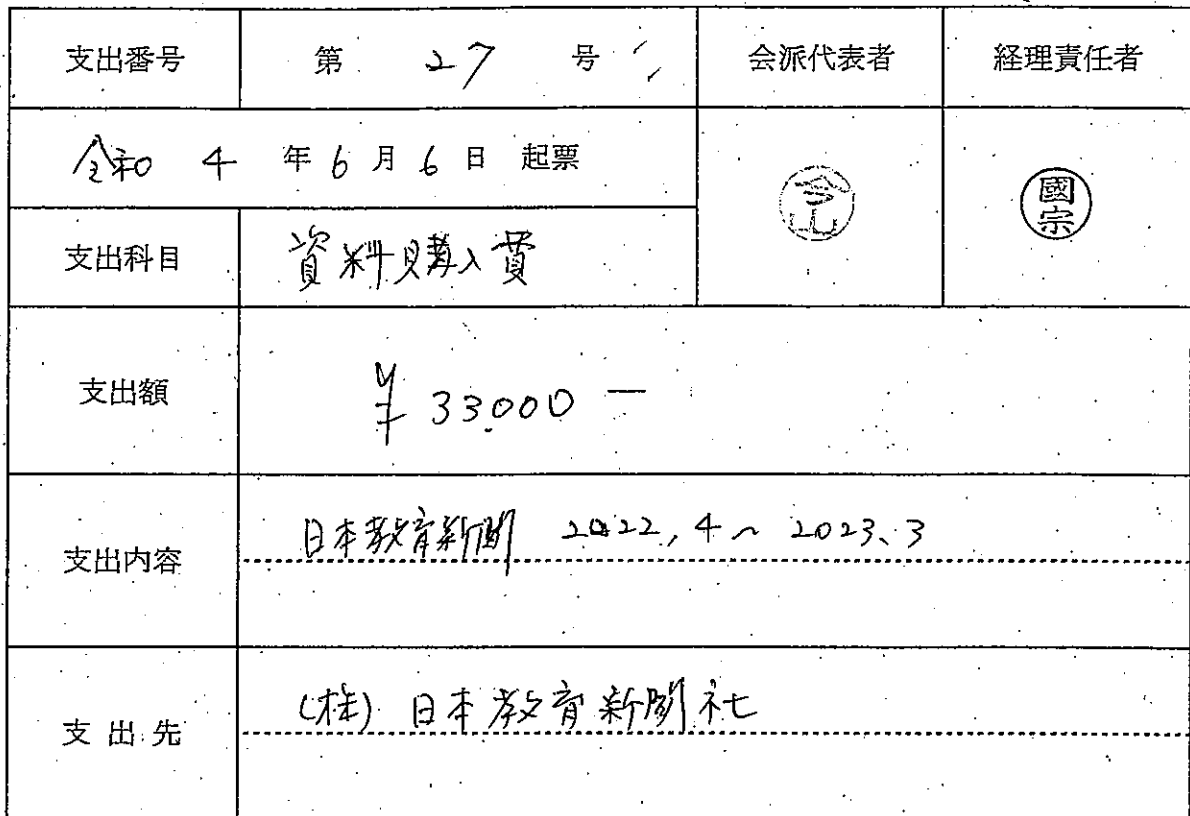 支出番号 第 27 号 会派代表者 経理責任者
令和 4 年 6 月 6 日 起票
今山 國宗
支出科目 資料購入費
支出額 ¥33,000 ー
支出内容 日本教育新聞 2022,4~2023、3
支出先 (株)日本教育新聞社